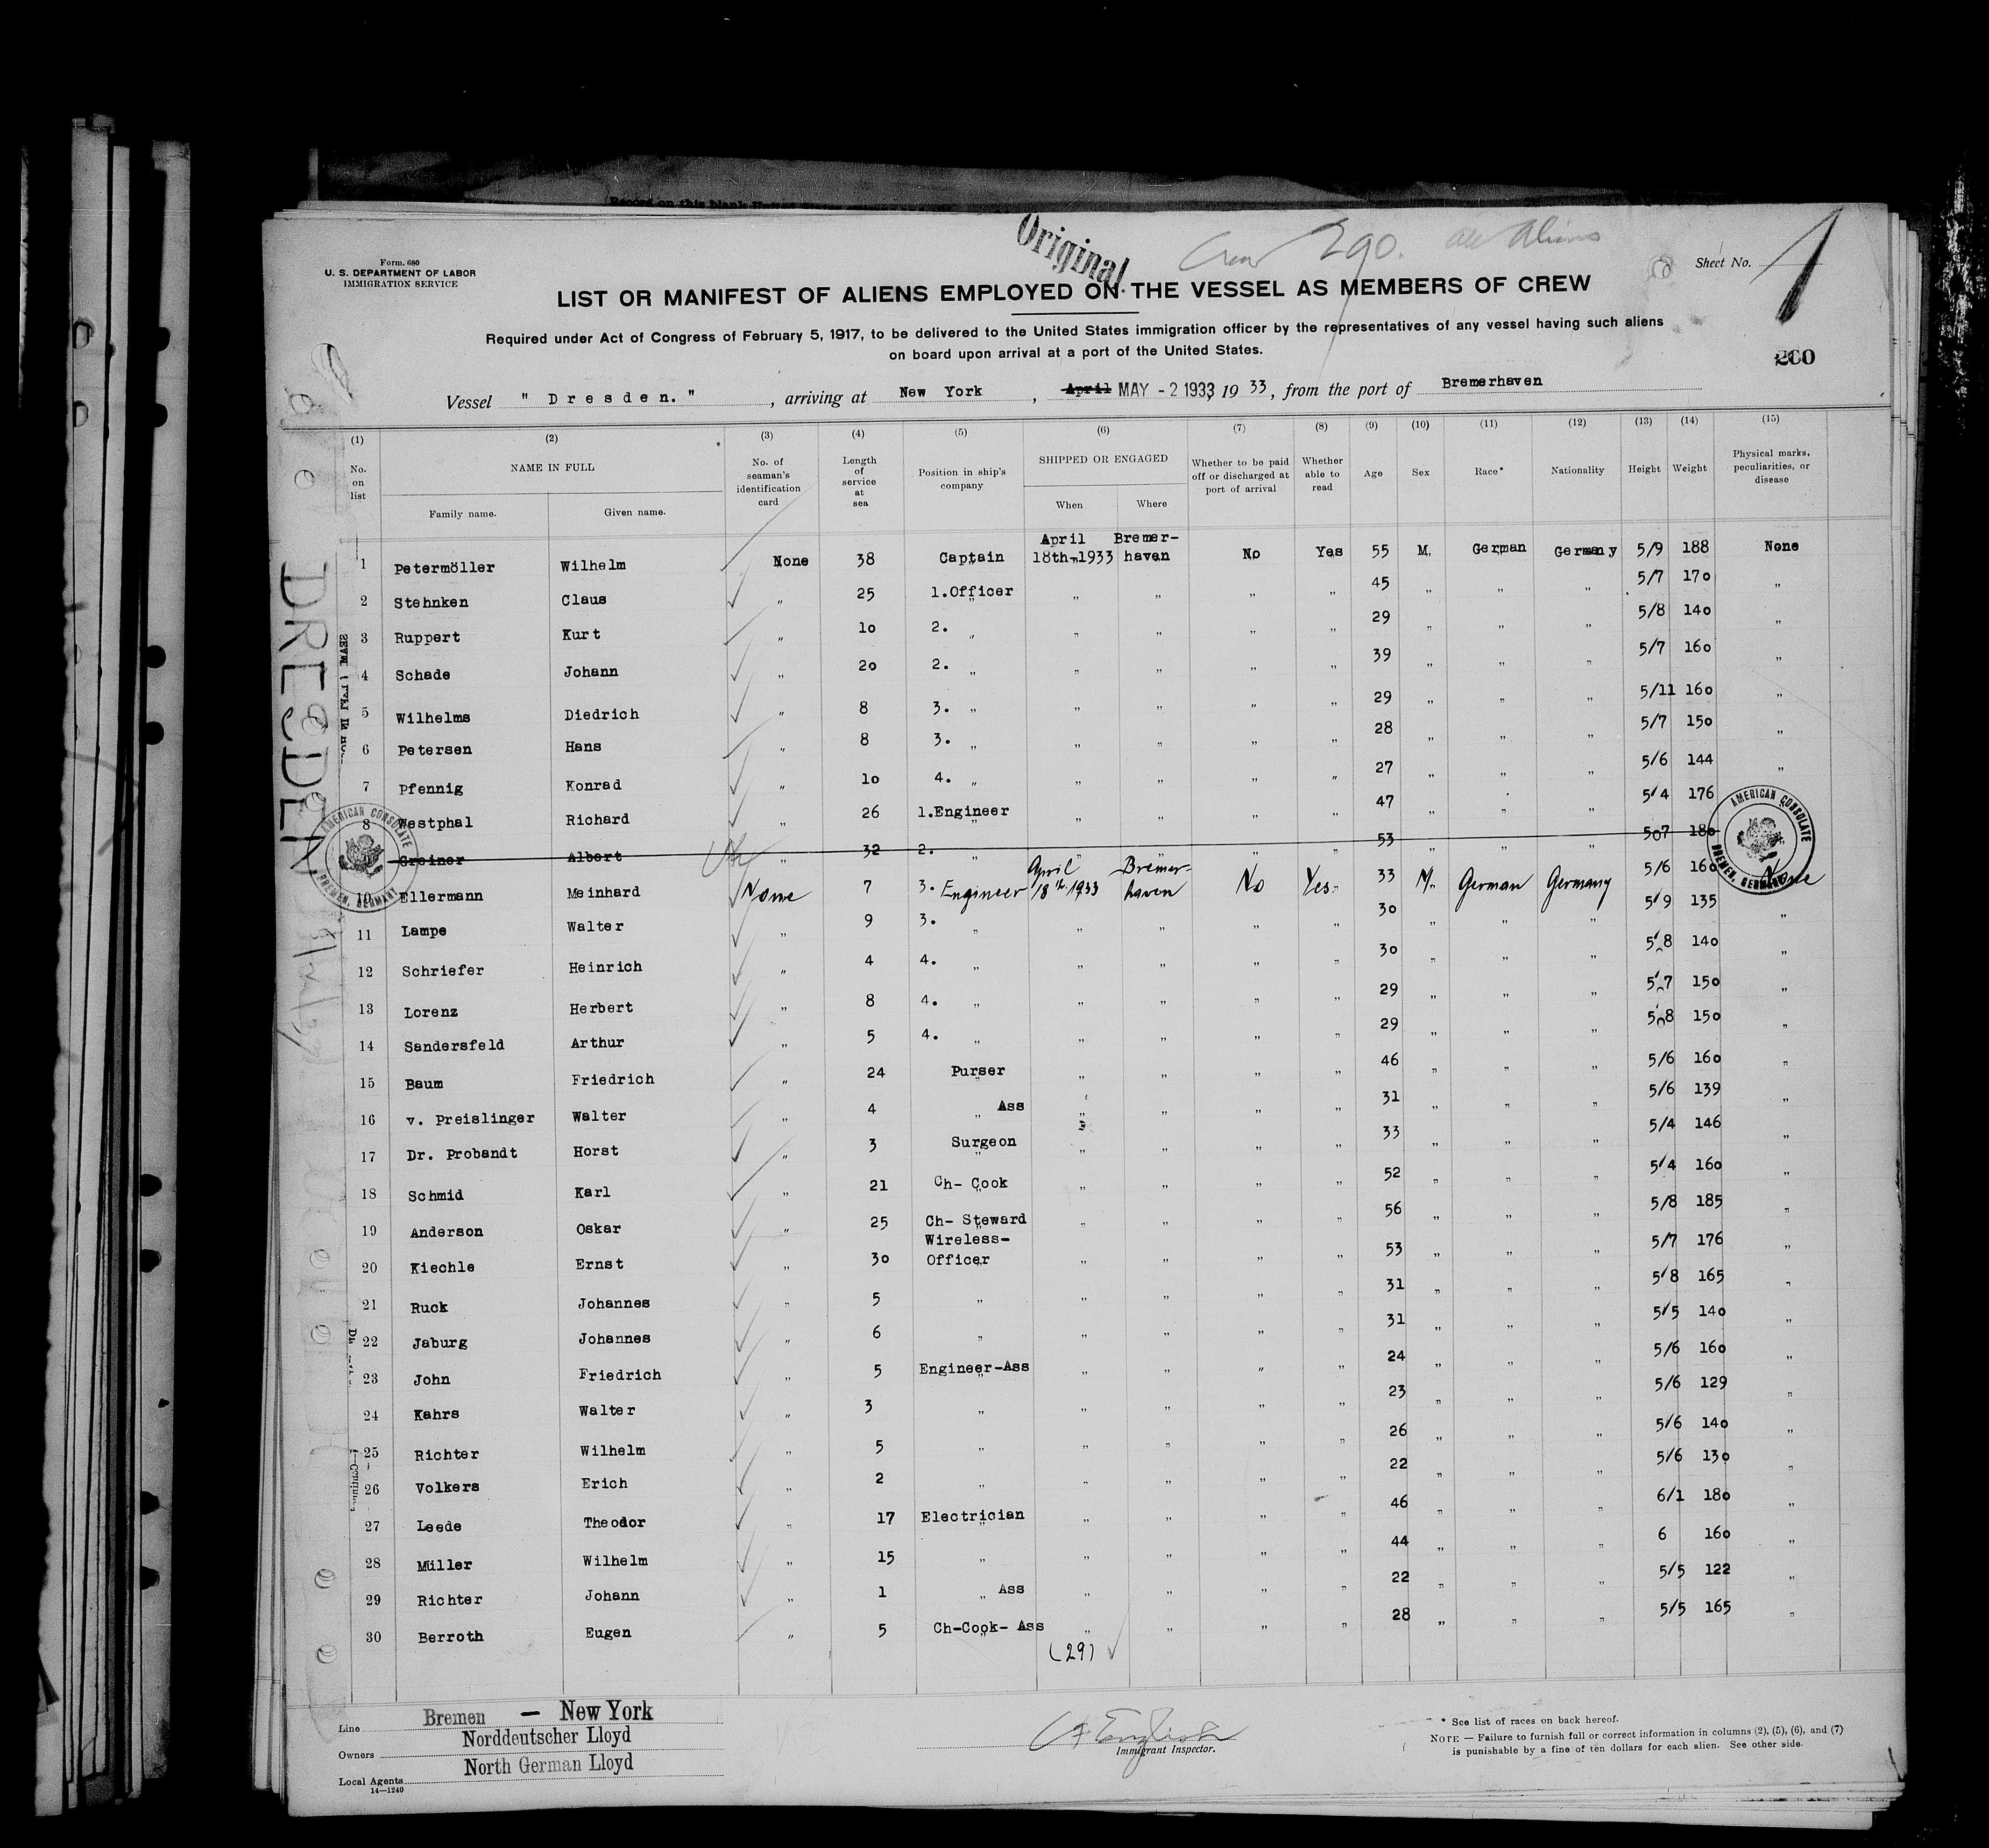 Original
Crew 290. all Aliens
Form. 680
U. S. DEPARTMENT OF LABOR
IMMIGRATION SERVICE
Sheet No. 1
LIST OR MANIFEST OF ALIENS EMPLOYED ON THE VESSEL AS MEMBERS OF CREW
Required under Act of Congress of February 5, 1917, to be delivered to the United States immigration officer by the representatives of any vessel having such aliens
on board upon arrival at a port of the United States.
260
Vessel " Dresden. ", arriving at New York, April MAY - 2 1933, 19 33, from the port of Bremerhaven
(1) (2) (3) (4) (5) (6) (7) (8) (9) (10) (11) (12) (13) (14) (15)
No. on list NAME IN FULL Family name. Given name. No. of seaman's identification card Length of service at sea Position in ship's company SHIPPED OR ENGAGED When Where Whether to be paid off or discharged at port of arrival Whether able to read Age Sex Race* Nationality Height Weight Physical marks, peculiarities, or disease
1 Petermöller Wilhelm None 38 Captain April 18th-1933 Bremer-haven No Yes 55 M. German Germany 5/9 188 None
2 Stehnken Claus " 25 1.Officer " " " " 45 " " " 5/7 170 "
3 Ruppert Kurt " 10 2. " " " " " 29 " " " 5/8 140 "
4 Schade Johann " 20 2. " " " " " 39 " " " 5/7 160 "
5 Wilhelms Diedrich " 8 3. " " " " " 29 " " " 5/11 160 "
6 Petersen Hans " 8 3. " " " " " 28 " " " 5/7 150 "
7 Pfennig Konrad " 10 4. " " " " " 27 " " " 5/6 144 "
8 Westphal Richard " 26 1.Engineer " " " " 47 " " " 5/4 176
Greiner Albert " 32 2. " " " " " 53 " " " 5/7 180
10 Ellermann Meinhard None 7 3. Engineer April 18th 1933 Bremer-haven No Yes 33 M. German Germany 5/6 160 None
11 Lampe Walter " 9 3. " " " " " 30 " " " 5/9 135 "
12 Schriefer Heinrich " 4 4. " " " " " 30 " " " 5/8 140 "
13 Lorenz Herbert " 8 4. " " " " " 29 " " " 5/7 150 "
14 Sandersfeld Arthur " 5 4. " " " " " 29 " " " 5/8 150 "
15 Baum Friedrich " 24 Purser " " " " 46 " " " 5/6 160 "
16 v. Preislinger Walter " 4 " Ass " " " " 31 " " " 5/6 139 "
17 Dr. Probandt Horst " 3 Surgeon " " " " 33 " " " 5/4 146 "
18 Schmid Karl " 21 Ch- Cook " " " " 52 " " " 5/4 160 "
19 Anderson Oskar " 25 Ch- Steward " " " " 56 " " " 5/8 185 "
20 Kiechle Ernst " 30 Wireless-Officer " " " " 53 " " " 5/7 176 "
21 Ruck Johannes " 5 " " " " " 31 " " " 5/8 165 "
22 Jaburg Johannes " 6 " " " " " 31 " " " 5/5 140 "
23 John Friedrich " 5 Engineer-Ass " " " " 24 " " " 5/6 160 "
24 Kahrs Walter " 3 " " " " " 23 " " " 5/6 129 "
25 Richter Wilhelm " 5 " " " " " 26 " " " 5/6 140 "
26 Volkers Erich " 2 " " " " " 22 " " " 5/6 130 "
27 Leede Theodor " 17 Electrician " " " " 46 " " " 6/1 180 "
28 Müller Wilhelm " 15 " " " " " 44 " " " 6 160 "
29 Richter Johann " 1 " Ass " " " " 22 " " " 5/5 122 "
30 Berroth Eugen " 5 Ch-Cook- Ass " " " " 28 " " " 5/5 165 "
(29)
DRESDEN
AMERICAN CONSULATE BREMEN, GERMANY
AMERICAN CONSULATE BREMEN, GERMANY
Line Bremen — New York
Owners Norddeutscher Lloyd
Local Agents North German Lloyd
14—1240
English
Immigrant Inspector.
* See list of races on back hereof.
NOTE — Failure to furnish full or correct information in columns (2), (5), (6), and (7)
is punishable by a fine of ten dollars for each alien. See other side.